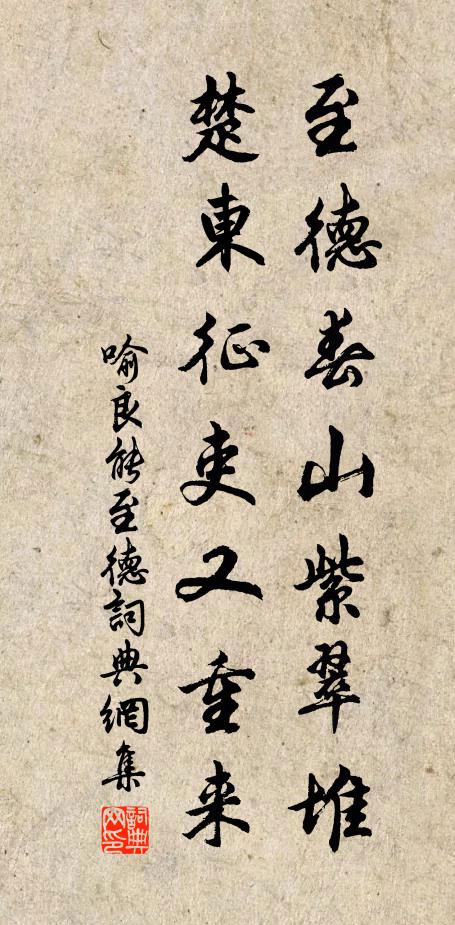 至德春山紫翠堆
楚東征吏又重来
喻良能至德詞典網集
詞典网印